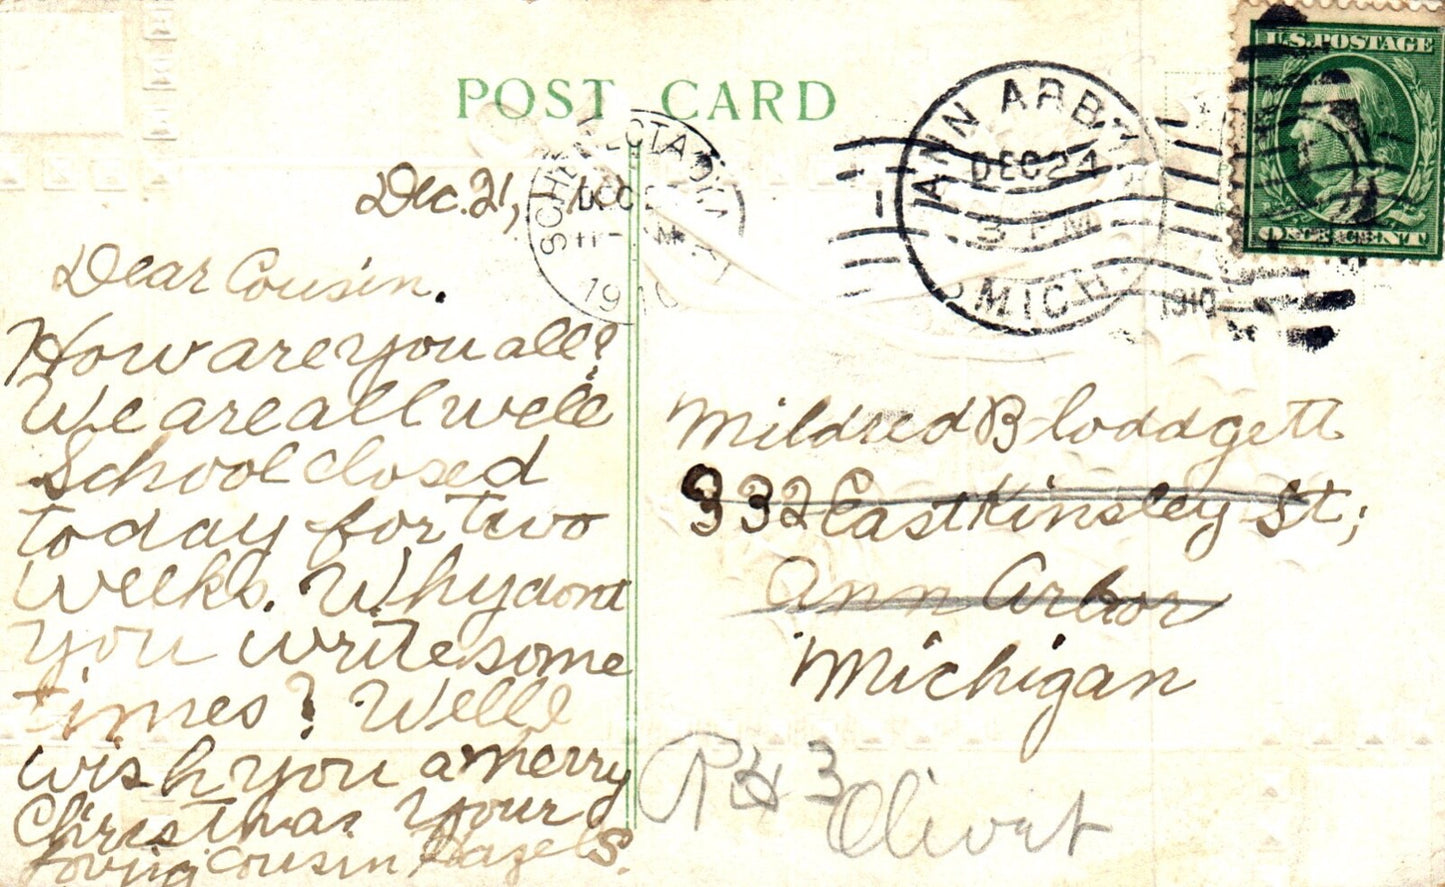 POST CARD
U.S. POSTAGE
ONE CENT
SCHENECTADY
DEC
1910
ANN ARBOR
DEC 24
3 PM
MICH.
1910
Dec. 21,
Dear Cousin.
How are you all?
We are all well
School closed
today for two
weeks. Why dont
you write some
times? Well I
wish you a merry
Christmas Your
loving cousin Hazel S.
Mildred Bloddgett
932 East Kinsley St,;
Ann Arbor
Michigan
R 3
Olivet